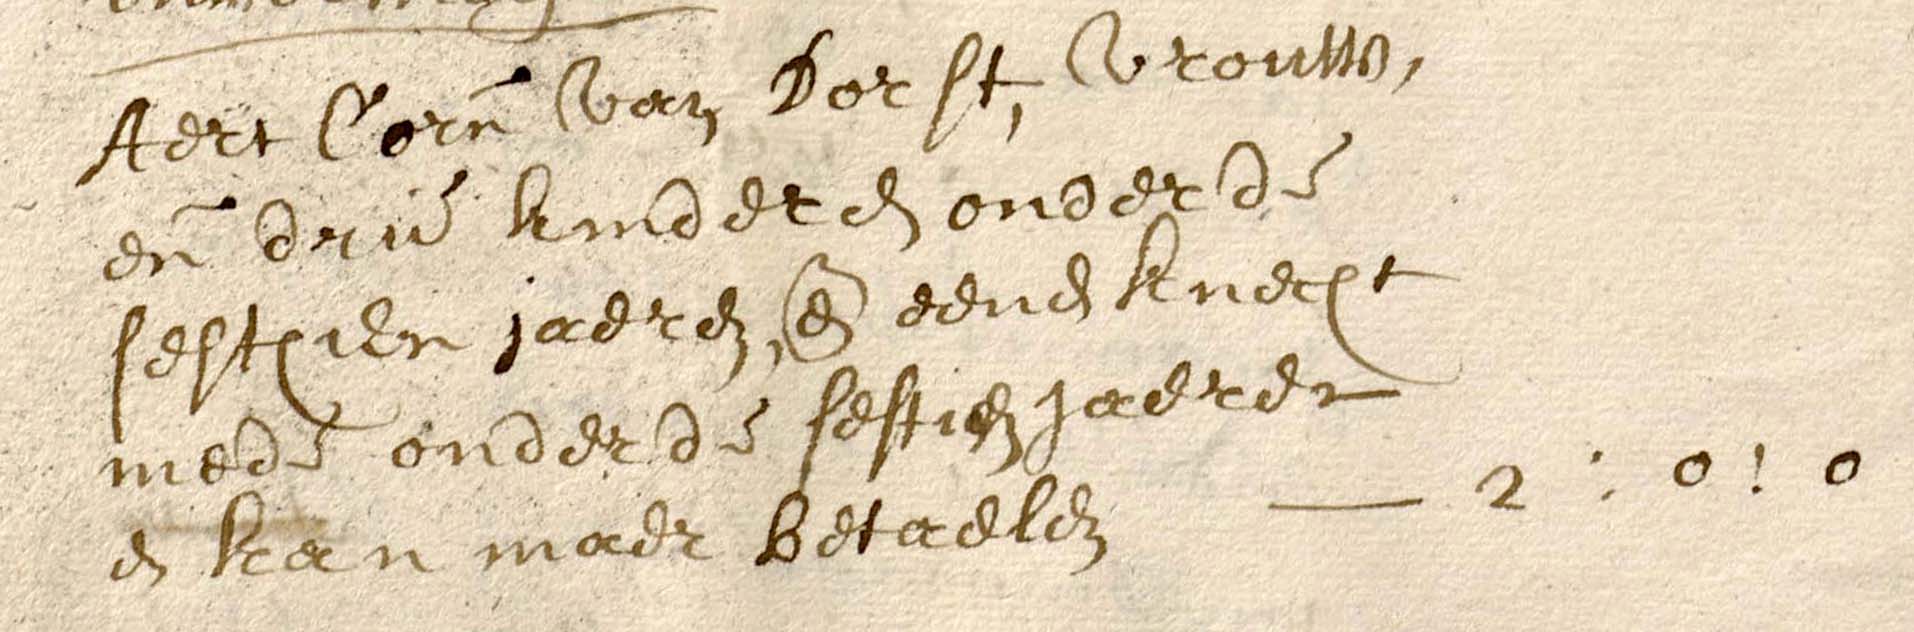 Aert Corn van Dorst, vrouw,
en drie kinderen onder de
sestien jaeren, en eenen knecht
mede onder de sestien jaeren
en kan maer betaelen — 2 : 0 : 0